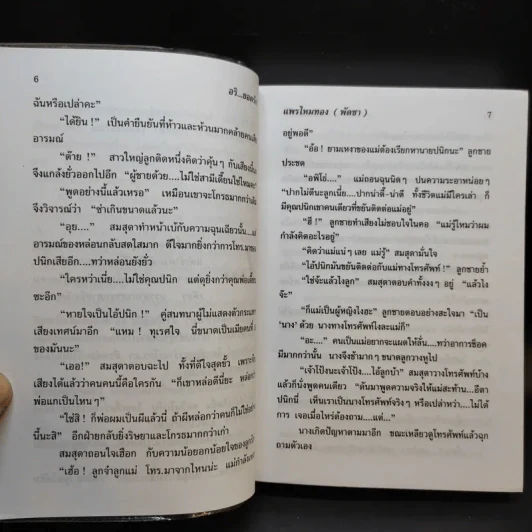 6
อริ...ยอดรั
ฉันหรือเปล่าคะ”
“ได้ยิน !” เป็นคำยืนยันที่ห้าวและห้วนมากคล้ายคน
อารมณ์
“ต๊าย ! สาวใหญ่ลูกติดหนึ่งคิดว่าคุ้นๆ กับเสียงนั้น
จึงแกล้งยั่วออกไปอีก “ผู้ชายด้วย....ไม่ใช่สามีเดี๊ยนใช่ไหมคะ”
“พูดอย่างนี้แล้วเหรอ” เหมือนเขาจะโกรธมากกว่าเดิม
จึงวิจารณ์ว่า “ชำเกินขนาดแล้วนะ”
“อุย....” สมสุดาทำหน้าเบ้กับความฉุนเฉียวนั้น....แต่
อารมณ์ของหล่อนกลับสดใสมาก ดีใจมากยิ่งกว่าโทร.มาของ
ปนิกเสียอีก....ทว่าหล่อนยังยั่ว
“ใครหว่าเนี่ย....ไม่ใช่คุณปนิก แต่ดุยิ่งกว่าคุณพ่อเดี๊ยน
ซะอีก”
“หายใจเป็นไอ้ปนิก !” คู่สนทนาผู้ไม่แสดงตัวกระแทก
เสียงเทศน์มาอีก “แหม ! ทุเรศใจ นี่ขนาดเป็นเมียคนอื่
ของมันนะ”
“เออ!” สมสุดาตอบฉะไป ทั้งที่ดีใจสุดขั้ว เพราะจับ
เสียงได้แล้วว่าคนคนนี้คือใครกัน “ก็เขาหล่อดีนี่ยะ หล่อกว่า
พ่อแกเป็นไหนๆ”
“ใช่สิ ! ก็พ่อผมเป็นผีแล้วนี่ ถ้าผีหล่อกว่าคนก็ไม่ใช่อย่าง
นี้นะสิ” อีกฝ่ายกลับยิ่งริษยาและโกรธมากกว่าเก่า
สมสุดาถอนใจเฮือก กับความน้อยอกน้อยใจของลูก
“เฮ้อ ! ลูกจำลูกแม่ โทร.มาจากไหนน่ะ แม่กำลัง
แพรไหมทอง ( พัดชา )
7
อยู่พอดี”
“อ้อ ! ยามเหงาของแม่ต้องเรียกหานายปนิกนะ” ลูกชาย
ประชด
“อพิโธ่....” แม่ถอนฉุนนิดๆ ปนความระอาหน่อยๆ
“ปากไม่ดีนะลูกเนี่ย....ปากน่าตี๋-น่าตี ทั้งชีวิตแม่มีใครเล่า ก็
มีคุณปนิกเขาคนเดียวที่ขยันติดต่อแม่อยู่”
“ฮึ !” ลูกชายทำเสียงไม่ชอบใจในคอ “แม่รู้ไหมว่าผม
กำลังคิดอะไรอยู่”
“คิดว่าแม่แน่ๆ เลย แม่รู้” สมสุดามั่นใจ
“ไอ้ปนิกมันขยันติดต่อกับแม่ทางโทรศัพท์ !” ลูกชายย้ำ
“ใช่จ้ะแล้วไงลูก” สมสุดาตอบคำทั้งงงๆ อยู่ “แล้วไง
จ๊ะ”
“ก็แม่เป็นผู้หญิงไงฮะ” ลูกชายตอบอย่างสะใจมา “เป็น
‘นาง’ ด้วย นางทางโทรศัพท์ไงละแม่ก็”
“อะ....” คนเป็นแม่อยากจะแผดให้ลั่น....ทว่าอาการช็อค
มีมากกว่านั้น นางจึงช้ามากๆ ขนาดลูกวางหูไป
“เจ้าโป้งนะเจ้าโป้ง....ไอ้ลูกบ้า” สมสุดาวางโทรศัพท์บ้าง
แล้วก็นั่งพูดคนเดียว “ดันมาพูดความจริงให้แม่สะท้าน....อีตา
ปนิกนี่ เห็นเราเป็นนางโทรศัพท์จริงๆ หรือเปล่าหว่า....ไม่ได้
การ เจอเมื่อไหร่ต้องถาม....แต่...”
นางเกิดปัญหาตามมาอีก ขณะเหลียวดูโทรศัพท์แล้วฉุก
ถามตัวเอง